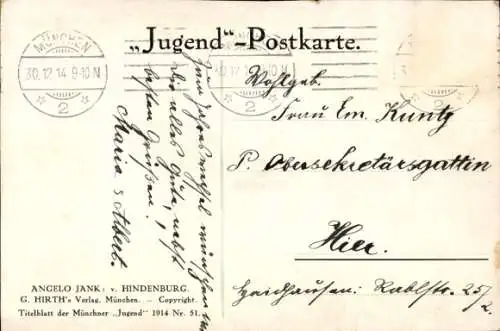 „Jugend“-Postkarte.
MÜNCHEN
30.12.14 9-10 N
2
30.12.14 9-10 N
2
2
Zum Jahreswechsel wünschen wir
Dir alles Gute, nebst
besten Grüßen!
Maria & Albert.
Wohlgeb.
Frau Em. Kuntz
P. Obersekretärsgattin
Hier.
Haidhausen: Rablstr. 25/2.
ANGELO JANK: v. HINDENBURG.
G. HIRTH's Verlag, München. — Copyright.
Titelblatt der Münchner „Jugend“ 1914 Nr. 51.